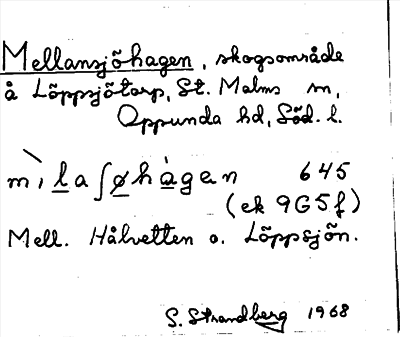 Mellansjöhagen, skogsområde
å Löppsjötorp, St. Malms sn,
Oppunda hd, Söd. l.
mìlaʃøhàgen 645
(ek 9G5f)
Mell. Hålvetten o. Löppsjön.
S. Strandberg 1968